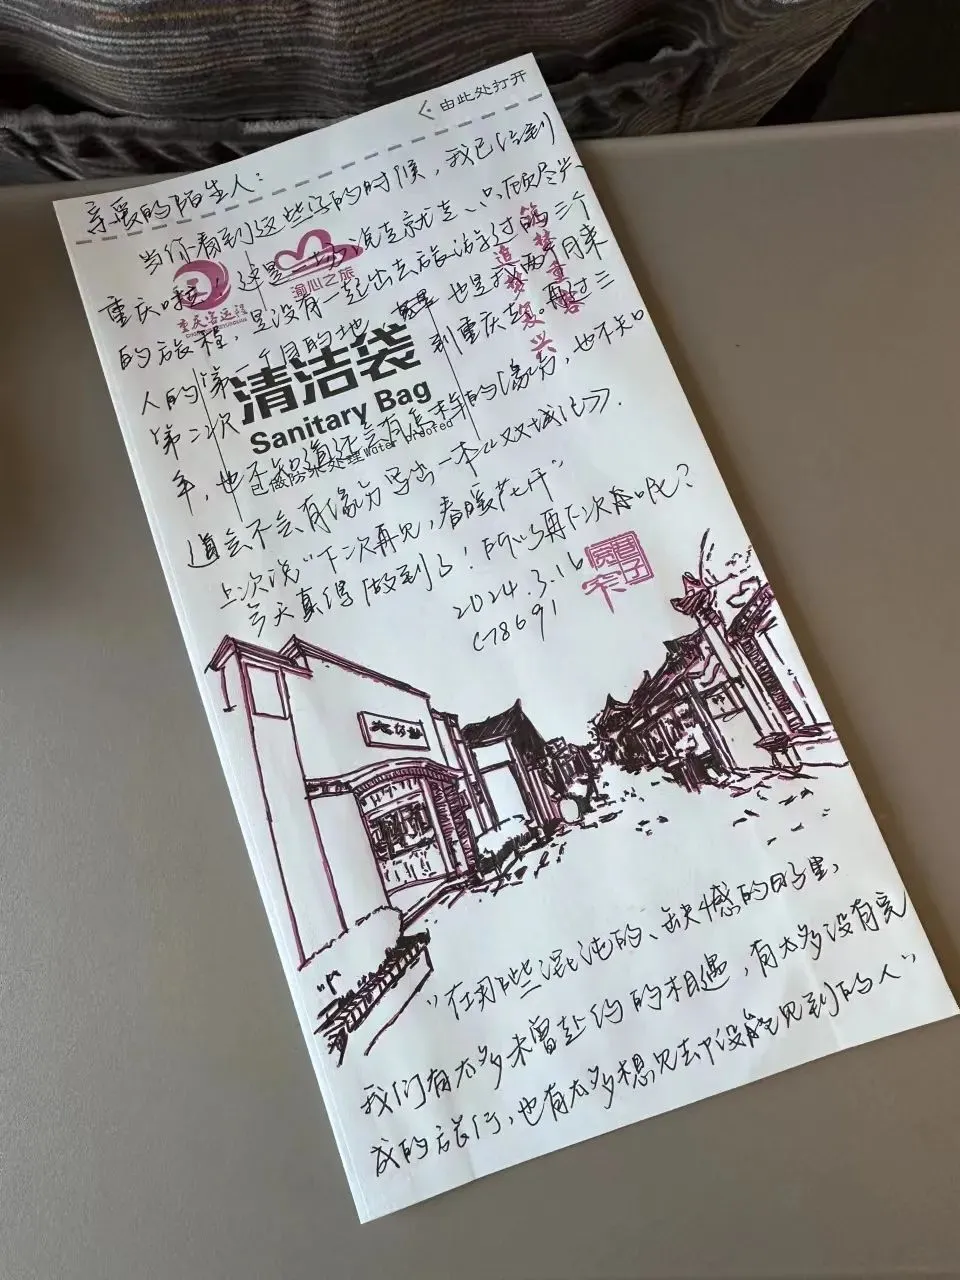 由此处打开
亲爱的陌生人：
当你看到这些字的时候，我已经到
重庆啦！这是一场说走就走、只顾尽兴
的旅程，是没有一起出去旅游过的三个
人的第一个目的地 也是我两个月来
第二次到重庆去。再过三
年，也不知道还会有怎样的缘分，也不知
道会不会有缘分写出一本《双城记》。
上次说“下次再见，春暖花开”
今天真得做到了！所以再下次在哪呢？
2024.3.16
C78691
重庆客运段
渝心之旅
追梦复兴
筑梦重客
清洁袋
Sanitary Bag
已做防水处理 Water proofed
“在那些混沌的、缺憾的日子里，
我们有太多未曾赴约的相遇，有太多没有完
成的旅行，也有太多想见去却没能见到的人”